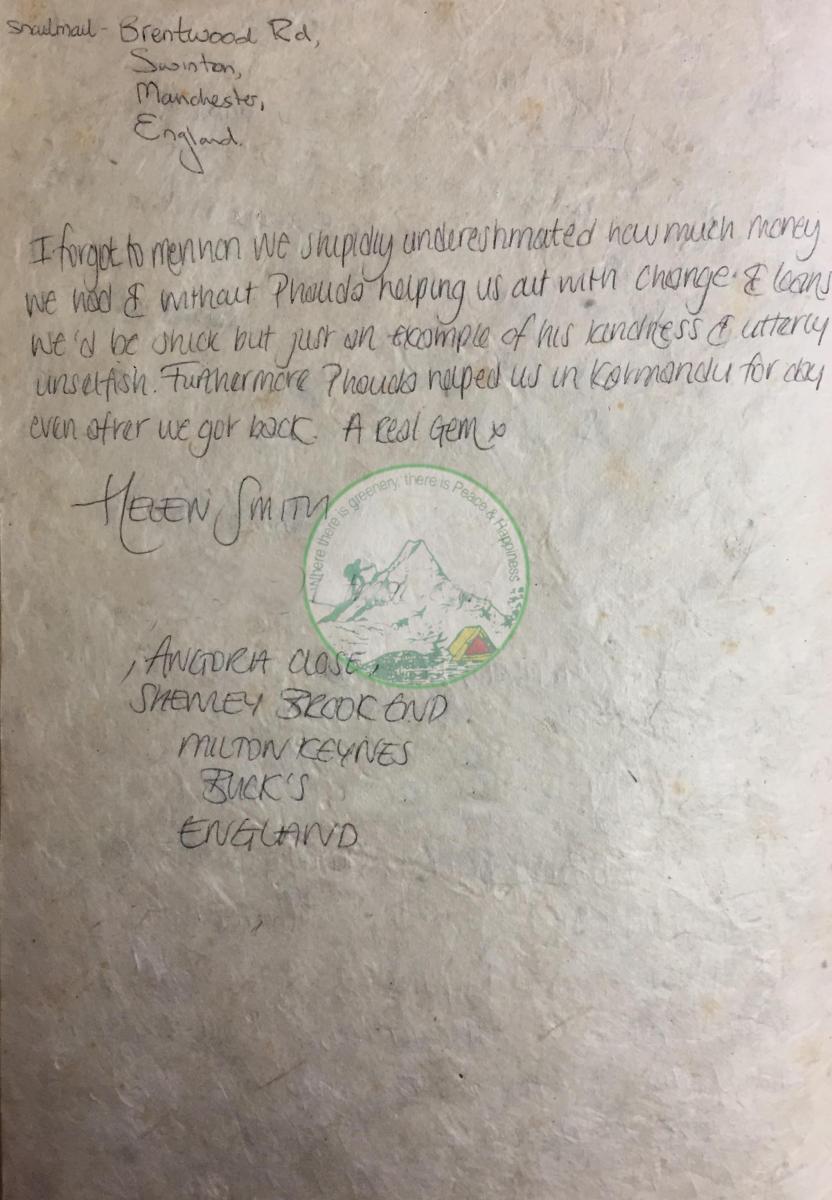 snailmail - Brentwood Rd,
Swinton,
Manchester,
England.
I forgot to mention we stupidly underestimated how much money
we had & without Phouda helping us out with change & loans
we'd be stuck but just an example of his kindness & utterly
unselfish. Furthermore Phouda helped us in Katmandu for day
even after we got back. A real Gem x
HELEN SMITH
Where there is greenery, there is Peace & Happiness
, ANGORA CLOSE,
SHENLEY BROOK END
MILTON KEYNES
BUCK'S
ENGLAND